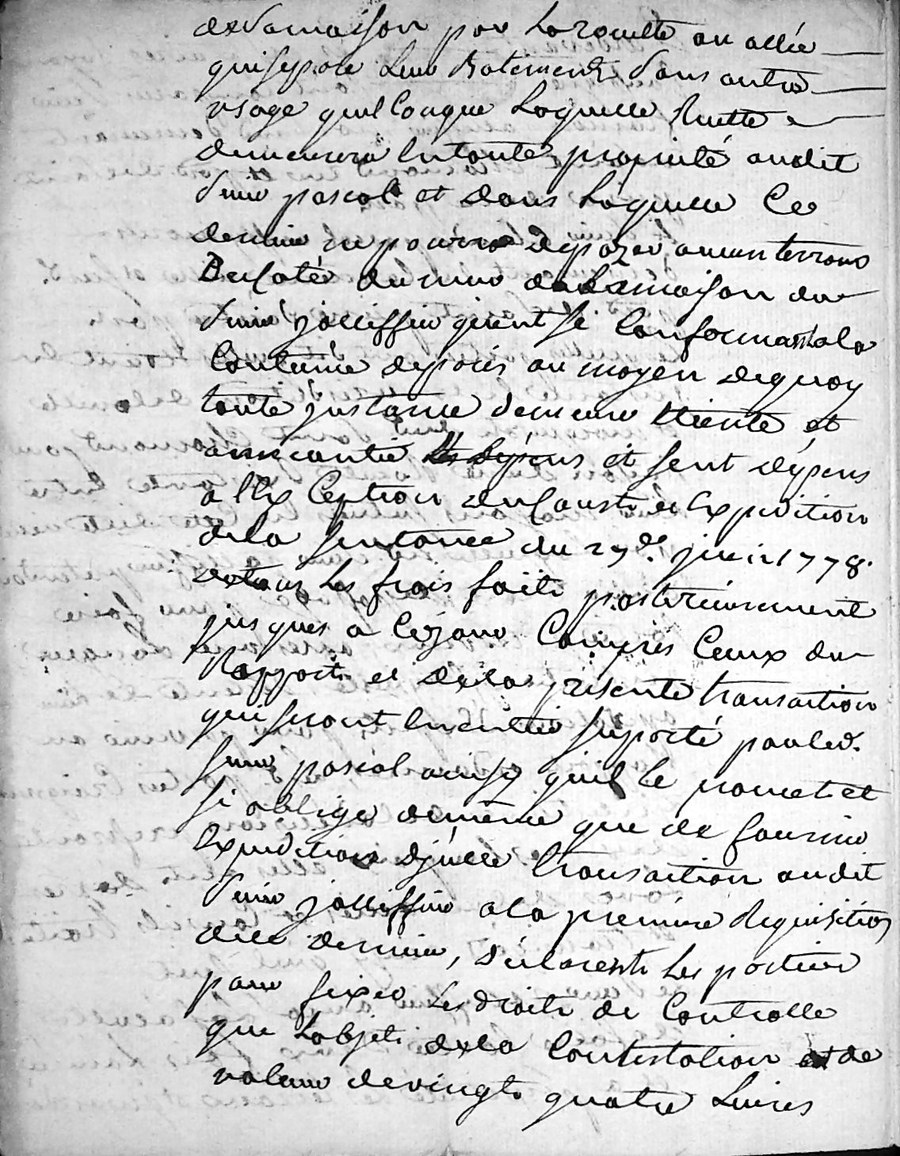 de la maison par la ruette ou allée
qui separe leurs batiments sans autre
usage quelconque laquelle ruette
demeurera en toute proprieté audit
Sieur pascal et dans laquelle ce
dernier ne pourra depozer aucun terrens
Du coté du mur de la maison du
Sieur jouiffin quent se conformant a la
Coutume de paris au moyen de quoy
toute jnstance demeure éteinte et
aneantie et sent dépens
a l'Exception du coust et Expedition
de la sentence du 27 de. juin 1778.
et tous les frais faits posterieurement
jusques a cejour Compris Ceux du
Rapport et de la présente transaction
qui seront en entier suporté par led.
Sieur pascal ainsy qu'il le promet et
s'i oblige de même que de fournir
Expedition djcelle transaction audit
Sieur jouiffin a la premiere Requisition
de ce dernier, déclarent les parties
pour fixer les droits de Controlle
que l'objet de la Contestation est de
valeur de vingt quatre Livres